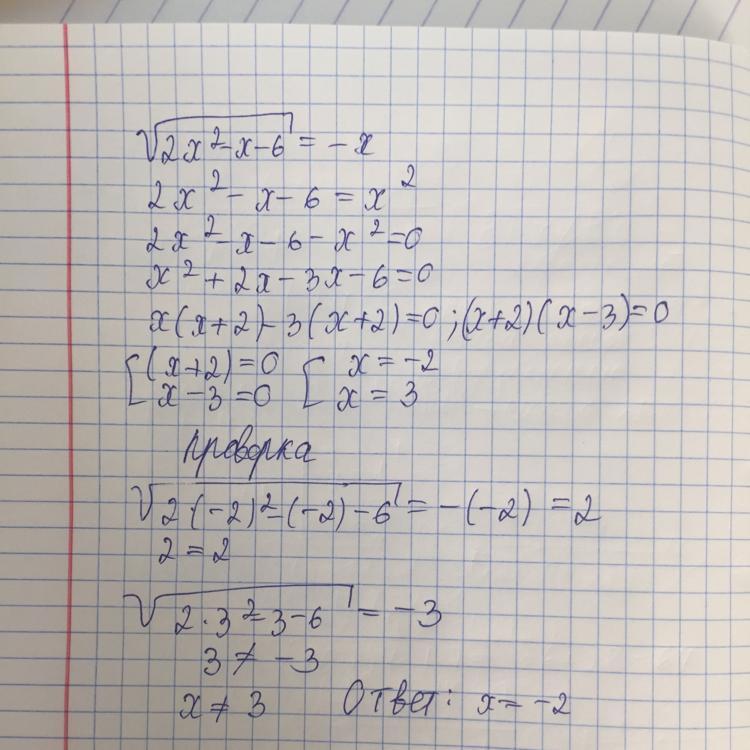 √(2x²-x-6) = -x
2x² - x - 6 = x²
2x² - x - 6 - x² = 0
x² + 2x - 3x - 6 = 0
x(x+2) - 3(x+2) = 0 ; (x+2)(x-3) = 0
[ (x+2) = 0 [ x = -2
x - 3 = 0 x = 3
Проверка
√(2·(-2)² - (-2) - 6) = -(-2) = 2
2 = 2
√(2·3² - 3 - 6) = -3
3 ≠ -3
x ≠ 3 Ответ: x = -2